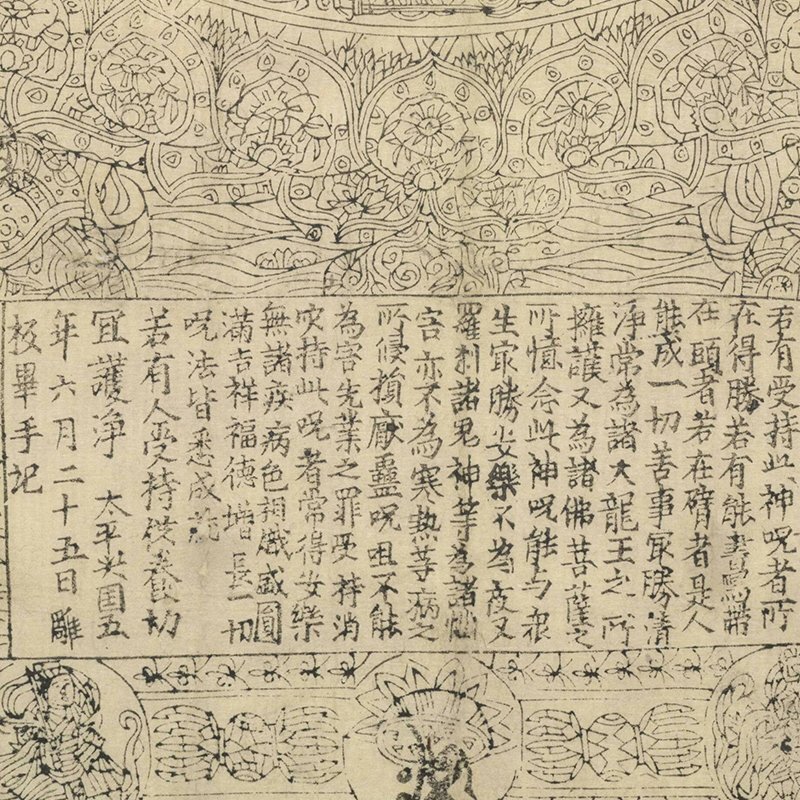 若有受持此神呪者所
在得勝若有能書寫帶
在頭者若在臂者是人
能成一切善事冣勝清
淨常為諸天龍王之所
擁護又為諸佛菩薩之
所憶念此神呪能与衆
生冣勝安樂不為夜叉
羅刹諸鬼神等為諸惱
害亦不為寒熱等病之
所侵損厭蠱呪咀不能
為害先業之罪受持消
灾持此呪者常得安樂
無諸疾病色相熾盛圓
滿吉祥福德增長一切
呪法皆悉成就
若有人受持供養切
冝護淨 太平興国五
年六月二十五日雕
板畢手記